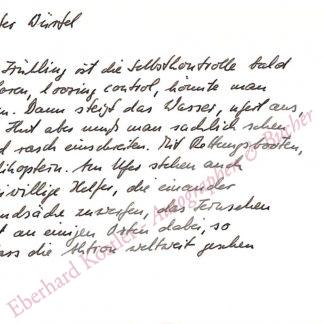 ter Dürrfel
Frühling ist die Selbstkontrolle bald
loren, loosing control, könnte man
n. Dann steigt das Wasser, ufert aus,
Hut aber muß man sachlich sehen
d rasch einschreiten. Mit Rettungsbooten,
likoptern. Am Ufer stehen auch
iwillige Helfer, die einander
ndsäcke zuwerfen, das Fernsehen
t an einigen Orten dabei, so
ass die Aktion weltweit gesehen
Eberhard Köstler Autographen & Bücher